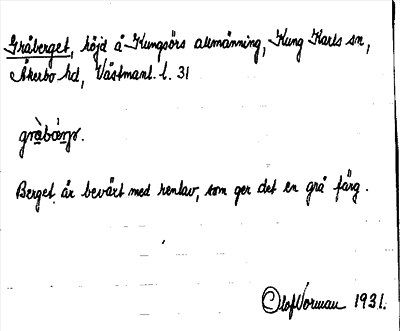 Gråberget, höjd å Kungsörs allmänning, Kung Karls sn,
Åkerbo hd, Västmanl. l. 31
gràbár̥jə.
Berget är bevärt med renlav, som ger det en grå färg.
Olof Vorman 1931.